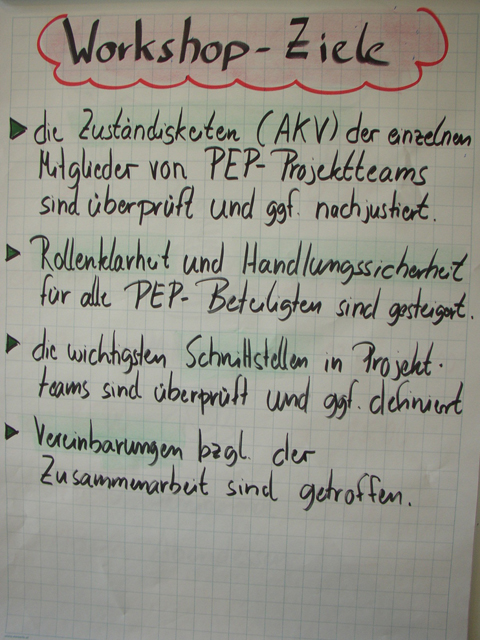 Workshop-Ziele
die Zuständigkeiten (AKV) der einzelnen
Mitglieder von PEP-Projektteams
sind überprüft und ggf. nachjustiert.
Rollenklarheit und Handlungssicherheit
für alle PEP-Beteiligten sind gesteigert.
die wichtigsten Schnittstellen in Projekt-
teams sind überprüft und ggf. definiert
Vereinbarungen bzgl. der
Zusammenarbeit sind getroffen.